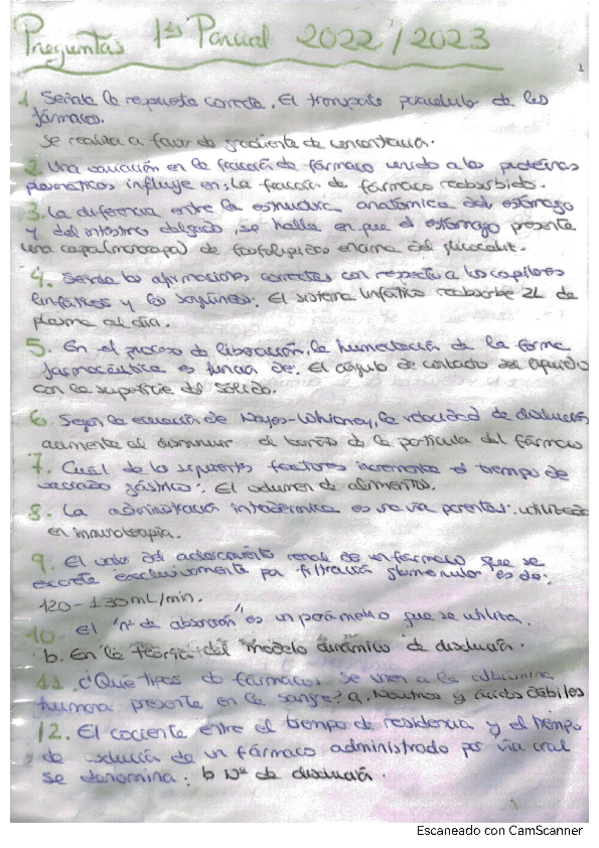 Preguntas 1er Parcial 2022/2023
1
1. Señale la respuesta correcta. El transporte paracelular de los
fármacos.
Se realiza a favor de gradiente de concentración.
2. Una variación en la fracción de fármaco unido a las proteínas
plasmáticas influye en: La fracción de fármaco reabsorbido.
3. La diferencia entre la estructura anatómica del estómago
y del intestino delgado, se halla en que el estómago presenta
una capa (monocapa) de fosfolípidos encima del glucocalix.
4. Señale las afirmaciones correctas con respecto a los capilares
linfáticos y los sanguíneos: El sistema linfático reabsorbe 2L de
plasma al día.
5. En el proceso de liberación, la humectación de la forma
farmacéutica es función de: El ángulo de contacto del líquido
con la superficie del sólido.
6. Según la ecuación de Noyes-Whitney, la velocidad de disolución
aumenta al disminuir el tamaño de la partícula del fármaco
7. Cuál de los siguientes factores incrementa el tiempo de
vaciado gástrico: El volumen de alimentos.
8. La administración intradérmica es una vía parenteral: utilizada
en inmunoterapia.
9. El valor del aclaramiento renal de un fármaco que se
excrete exclusivamente por filtración glomerular es de:
120-130 mL/min.
10. El "nº de absorción" es un parámetro que se utiliza.
b. En la teoría del modelo dinámico de disolución.
11. ¿Qué tipos de fármacos se unen a la albúmina
humana presente en la sangre? a. Neutros y ácidos débiles
12. El cociente entre el tiempo de residencia y el tiempo
de disolución de un fármaco administrado por vía oral
se denomina: b Nº de disolución.
Escaneado con CamScanner